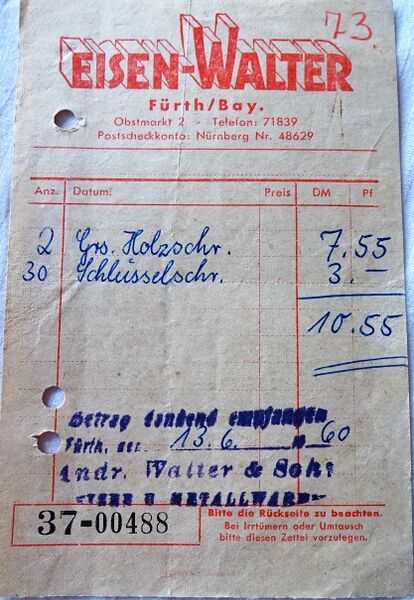 73.
EISEN-WALTER
Fürth/Bay.
Obstmarkt 2 - Telefon: 71839
Postscheckkonto: Nürnberg Nr. 48629
Anz. Datum: Preis DM Pf
2 Grs. Holzschr. 7.55
30 Schlüsselschr. 3.—
10.55
Betrag dankend empfangen
Fürth, den 13.6. 60
Andr. Walter & Sohn
EISEN & METALLWAREN
37-00488
Bitte die Rückseite zu beachten.
Bei Irrtümern oder Umtausch
bitte diesen Zettel vorzulegen.